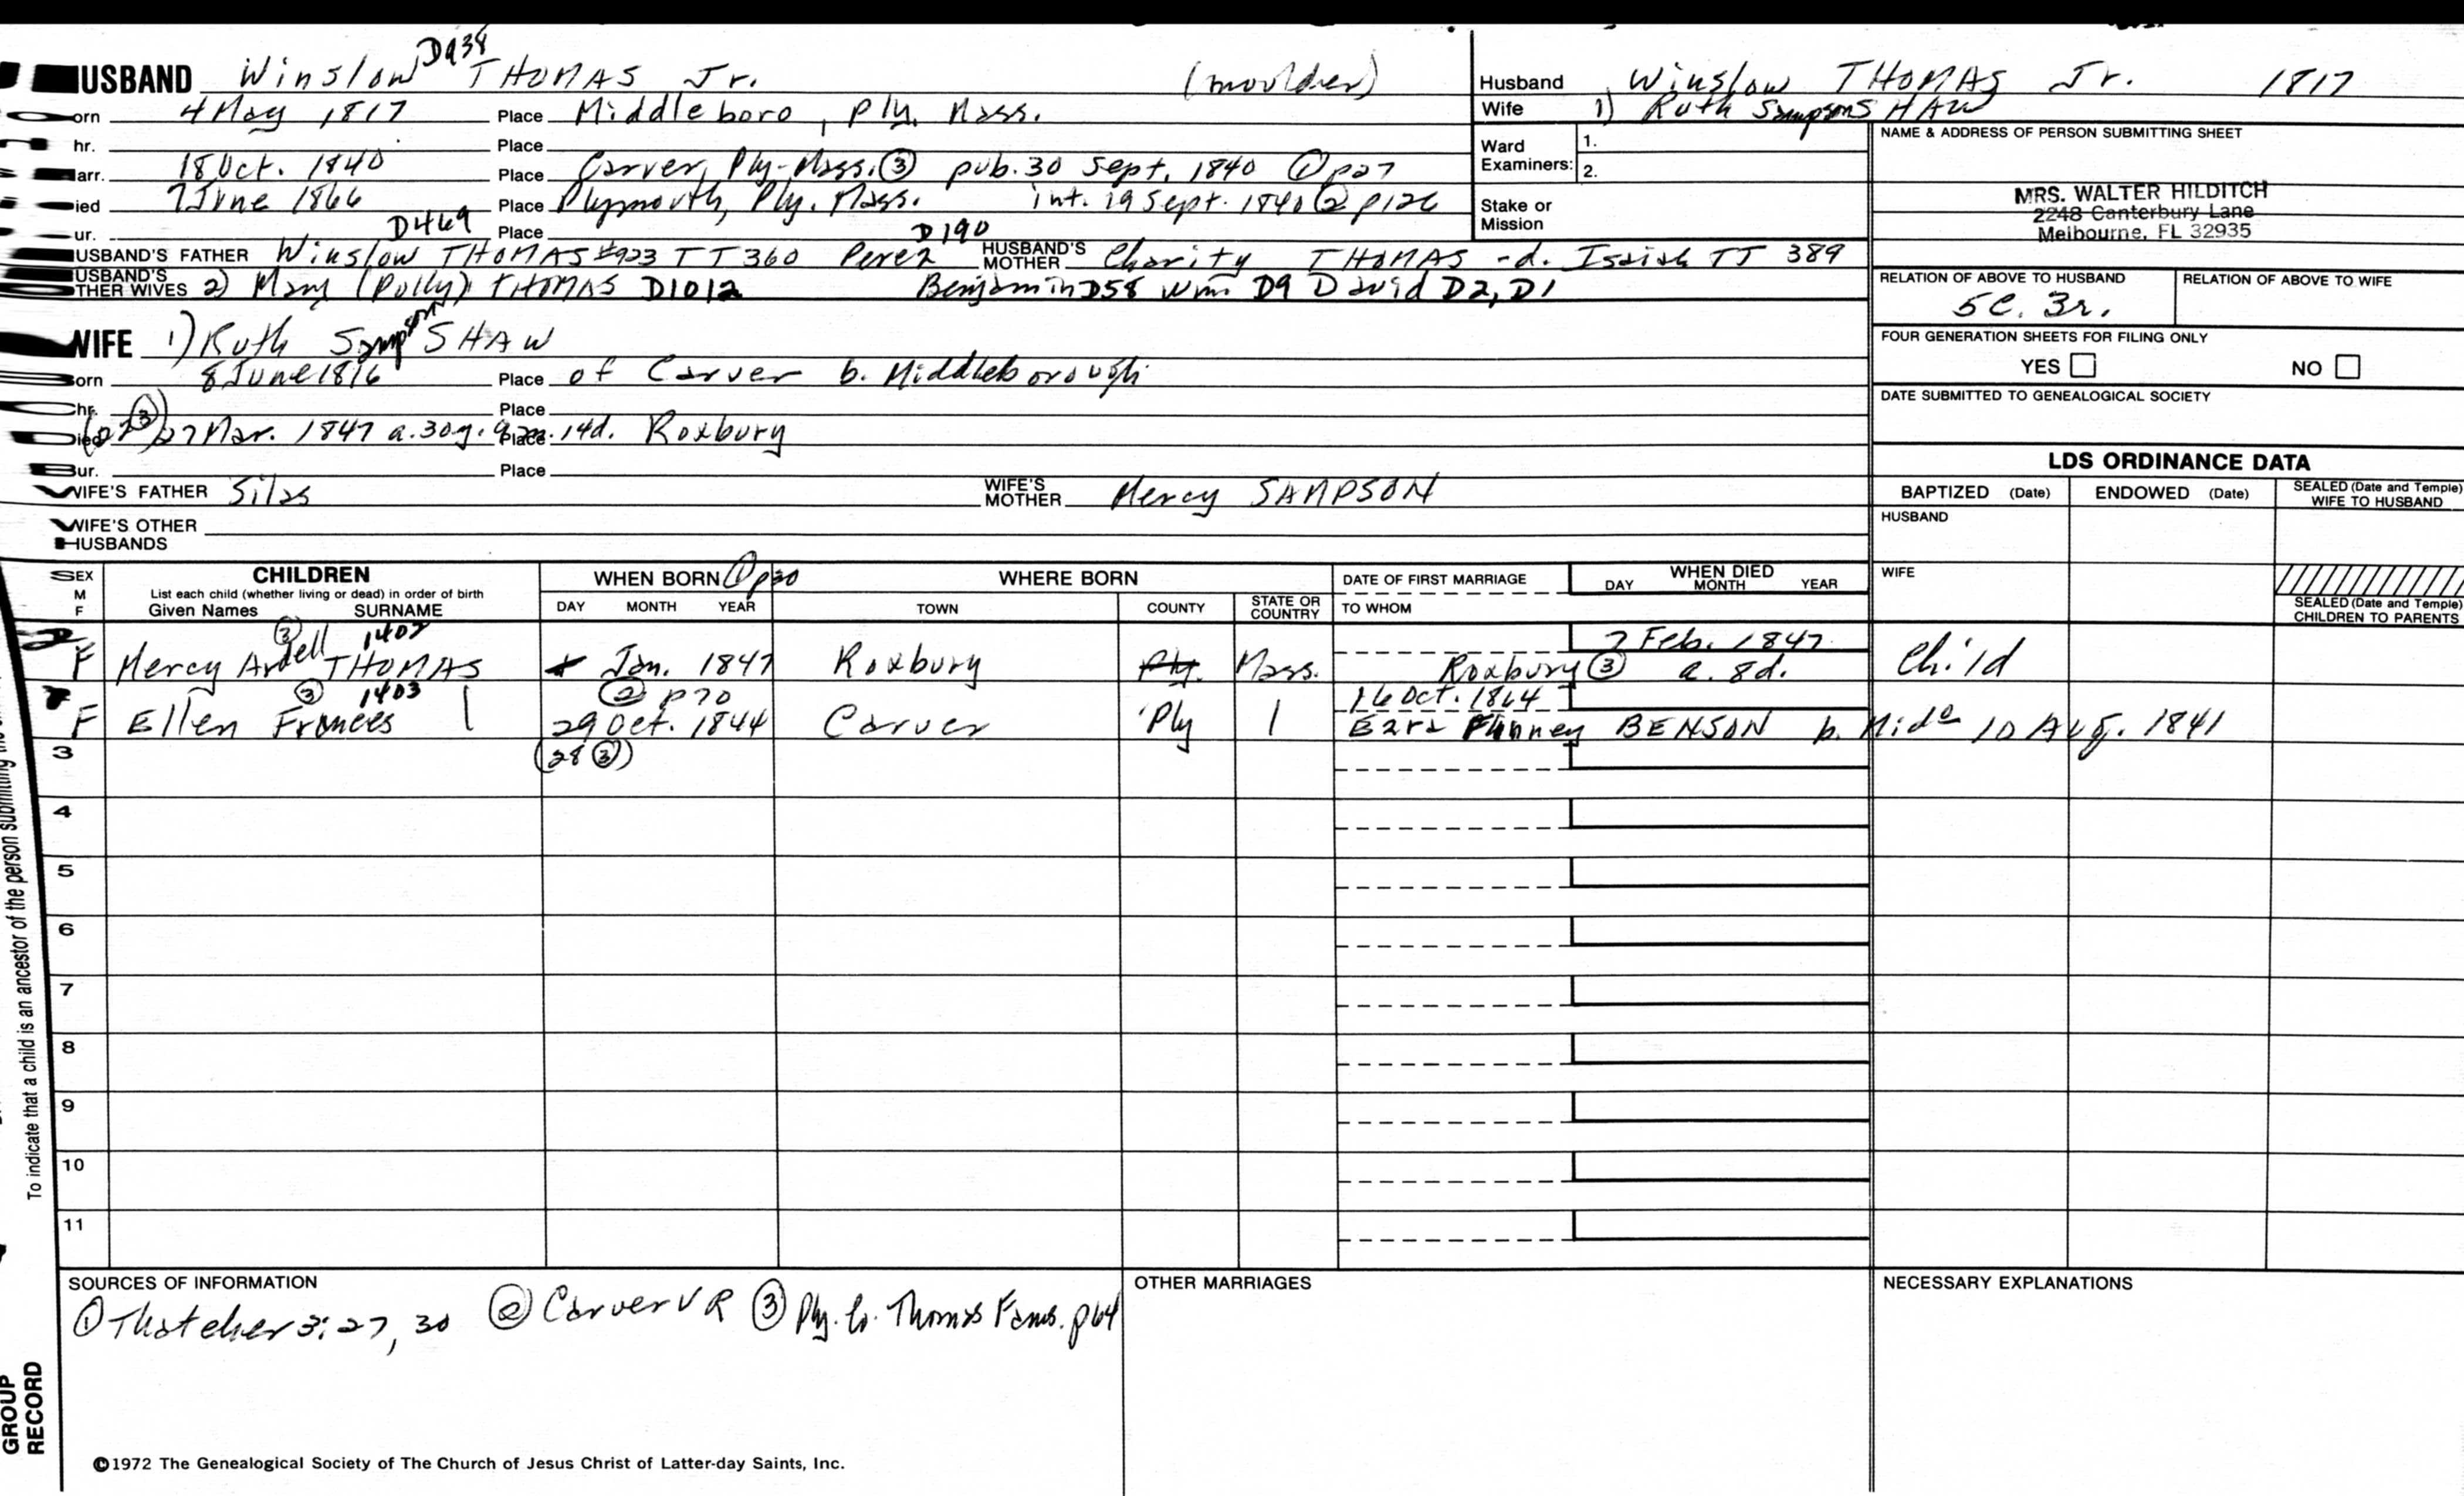 D938
USBAND Winslow THOMAS Jr. (moulder)
orn 4 May 1817 Place Middleboro, Ply. Mass.
hr. Place
arr. 18 Oct. 1840 Place Carver, Ply-Mass. ③ pub. 30 Sept. 1840 ① p27
ied 7 June 1866 Place Plymouth, Ply. Mass. int. 19 Sept. 1840 ② p126
ur. D469 Place D190
USBAND'S FATHER Winslow THOMAS #923 TT 360 Perez HUSBAND'S MOTHER Charity THOMAS -d. Isaiah TT 389
USBAND'S THER WIVES 2) Mary (Polly) THOMAS D1012 Benjamin D58 Wm. D9 David D2, D1
WIFE 1) Ruth Sampson SHAW
Born 8 June 1816 Place of Carver b. Middleborough
Chr. Place
Died ③) 27 Mar. 1847 a. 30y. 9m. 14d. Place Roxbury
Bur. Place
WIFE'S FATHER Silas WIFE'S MOTHER Mercy SAMPSON
WIFE'S OTHER HUSBANDS
Husband Winslow THOMAS Jr. 1817
Wife 1) Ruth Sampson SHAW
Ward Examiners: 1.
2.
Stake or Mission
NAME & ADDRESS OF PERSON SUBMITTING SHEET
MRS. WALTER HILDITCH
2248 Canterbury Lane
Melbourne, FL 32935
RELATION OF ABOVE TO HUSBAND RELATION OF ABOVE TO WIFE
5C. 3r.
FOUR GENERATION SHEETS FOR FILING ONLY
YES NO
DATE SUBMITTED TO GENEALOGICAL SOCIETY
LDS ORDINANCE DATA
BAPTIZED (Date) ENDOWED (Date) SEALED (Date and Temple) WIFE TO HUSBAND
HUSBAND
WIFE
SEALED (Date and Temple) CHILDREN TO PARENTS
SEX M F
CHILDREN
List each child (whether living or dead) in order of birth
Given Names SURNAME
WHEN BORN ① p30
DAY MONTH YEAR
WHERE BORN
TOWN COUNTY STATE OR COUNTRY
DATE OF FIRST MARRIAGE
TO WHOM
WHEN DIED
DAY MONTH YEAR
③ 1402 7 Feb. 1847
F Mercy Ardell THOMAS Jan. 1847 Roxbury Ply. Mass. Roxbury ③ a. 8d. Child
③ 1403 ② p70 16 Oct. 1864
F Ellen Frances 29 Oct. 1844 Carver Ply Ezra Phinney BENSON b. Mid° 10 Aug. 1841
3 (28 ③)
4
5
6
7
8
9
10
11
To indicate that a child is an ancestor of the person submitting the
GROUP RECORD
SOURCES OF INFORMATION
① Thatcher 3:27, 30 ② Carver VR ③ Ply. Co. Thomas Fams. p64
OTHER MARRIAGES
NECESSARY EXPLANATIONS
©1972 The Genealogical Society of The Church of Jesus Christ of Latter-day Saints, Inc.